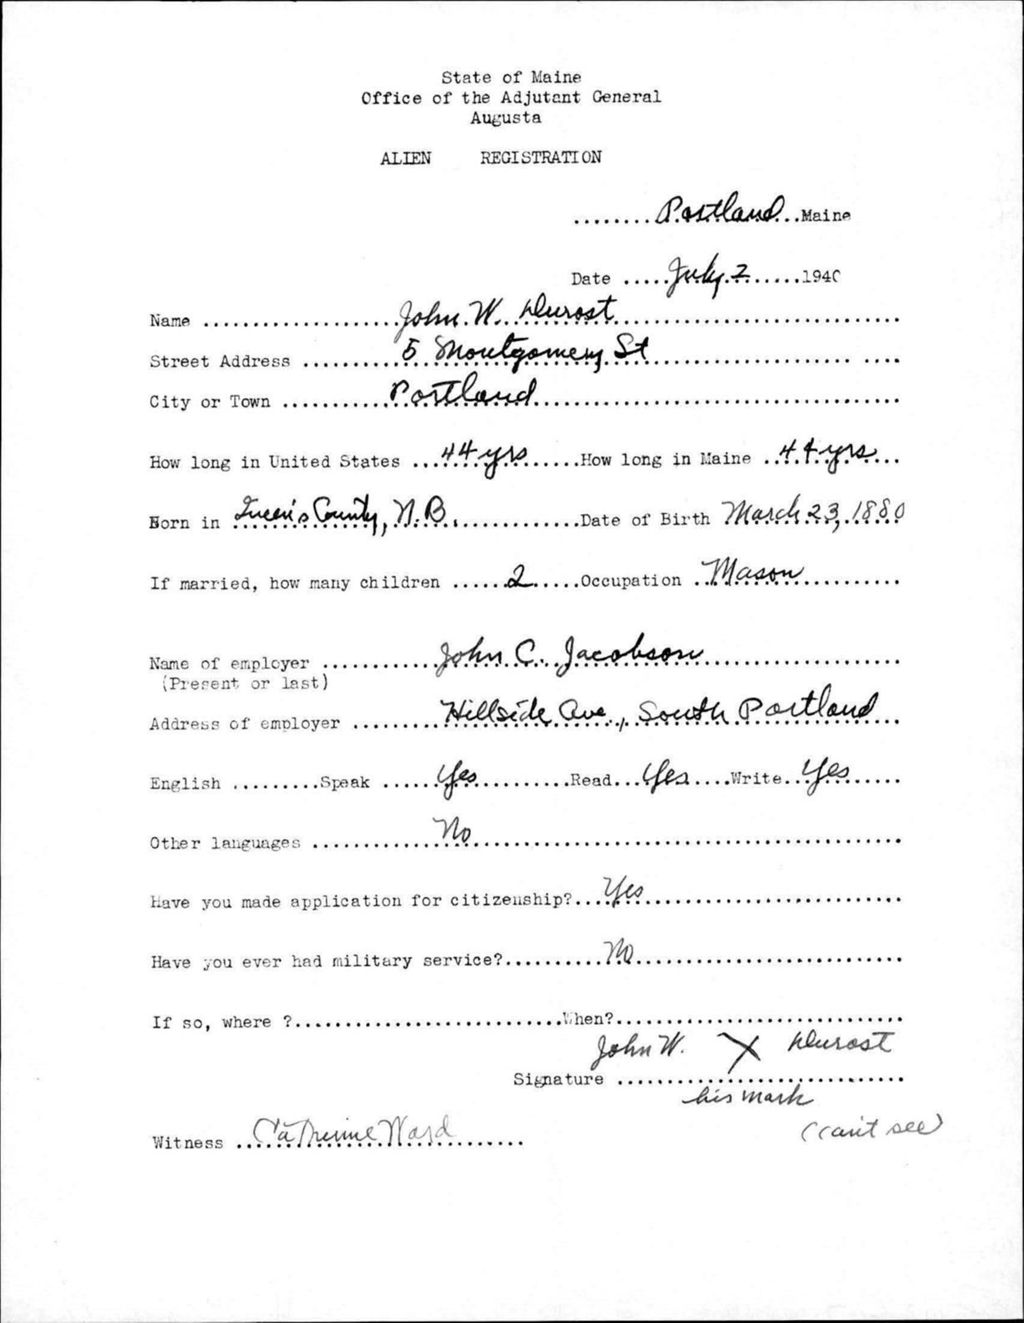 State of Maine
Office of the Adjutant General
Augusta
ALIEN REGISTRATION
........Portland..Maine
Date .....July 2......1940
Name ....................John W. Durost..............................
Street Address ..........5 Montgomery St......................... ....
City or Town ...........Portland.....................................
How long in United States ...44 yrs......How long in Maine ..44 yrs...
Born in Queen's County, N.B.............Date of Birth March 23, 1880
If married, how many children ......2.....Occupation ..Mason..........
Name of employer ............John C. Jacobson....................
(Present or last)
Address of employer .........Hillside Ave., South Portland..
English .........Speak ......Yes..........Read...Yes....Write..Yes.....
Other languages .............No...........................................
Have you made application for citizenship?....Yes..........................
Have you ever had military service?..........No...........................
If so, where ?...........................When?.............................
John W. X Durost
Signature .............................
his mark
Witness ...Catherine Ward.......
(can't see)